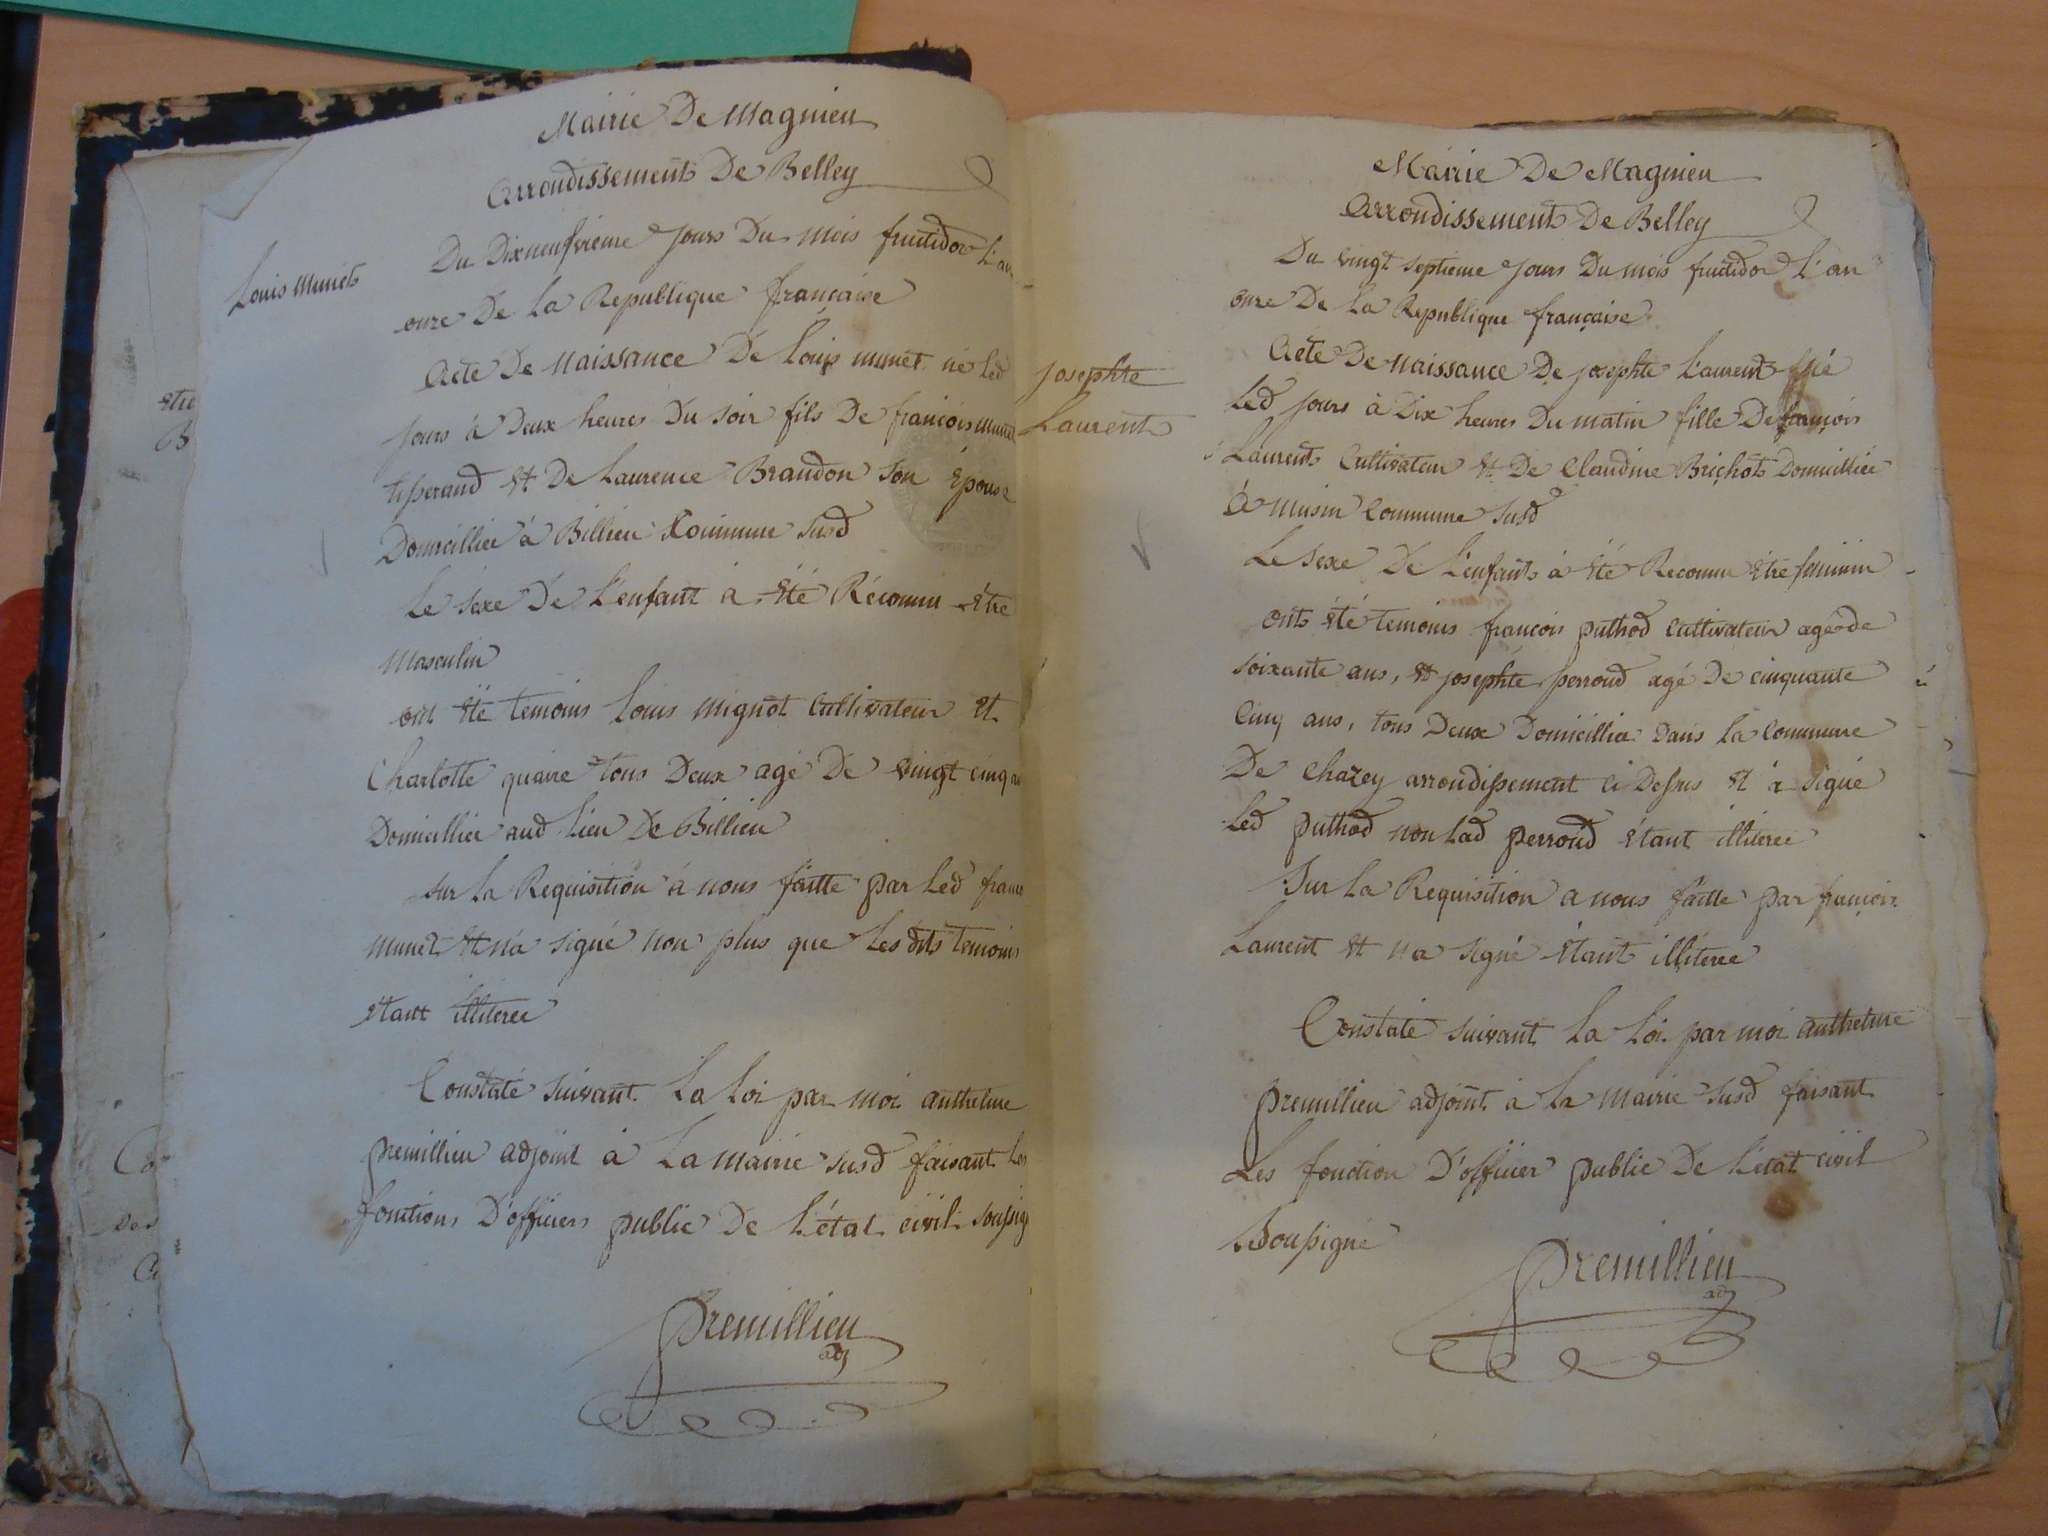 Mairie De Magnieu
Arrondissement De Belley
Louis Munets
Du Dixneufvieme Jours Du mois fructidor L'an
onze De La Republique francaise
Acte De Naissance De Louis munet né Led
Jours à Deux heures Du soir fils De francois munet
tisserand et De Laurence Brandon son épouse
Domicilliée à Billieu Commune susd
Le sexe De L'enfant à été Réconnu être
Masculin
ont été temoins Louis mignot Cultivateur et
Charlotte quaire tous Deux agé De vingt cinq
Domicilliée aud Lieu De Billieu
sur La Requisition à nous faitte par Led
munet et n'a signé non plus que Les dits temoins
étant illiteree
Constaté suivant La Loi par moi anthelme
premillieu adjoint à La mairie susd faisant Les
fonctions D'officiers public De L'état civil
Premillieu
adj
être
B
Mairie De Magnieu
Arrondissement De Belley
Du vingt septieme Jours Du mois fructidor L'an
onze De La Republique française
Josephte
Laurent
Acte De Naissance De josephte Laurent Né
Led Jours à Dix heures Du matin fille De françois
Laurents Cultivateur et De Claudine Brichots Domicilliée
à musin Commune susd
Le sexe De L'enfants à été Reconnu être feminin
onts été temoins françois puthod Cultivateur agé de
soixante ans, et josephte perroud agé De cinquante
Cinq ans, tous Deux Domicillie Dans La Commune
De Chazey arrondissement Ci Dessus et à signé
Led puthod non Lad perroud étant illiteree
Sur La Requisition a nous faitte par françois
Laurent et n'a signé étant illiteree
Constaté suivant La Loi par moi anthelme
premillieu adjoint à La mairie susd faisant
Les fonction D'officier public De L'état civil
Soussigné
Premillieu
adj